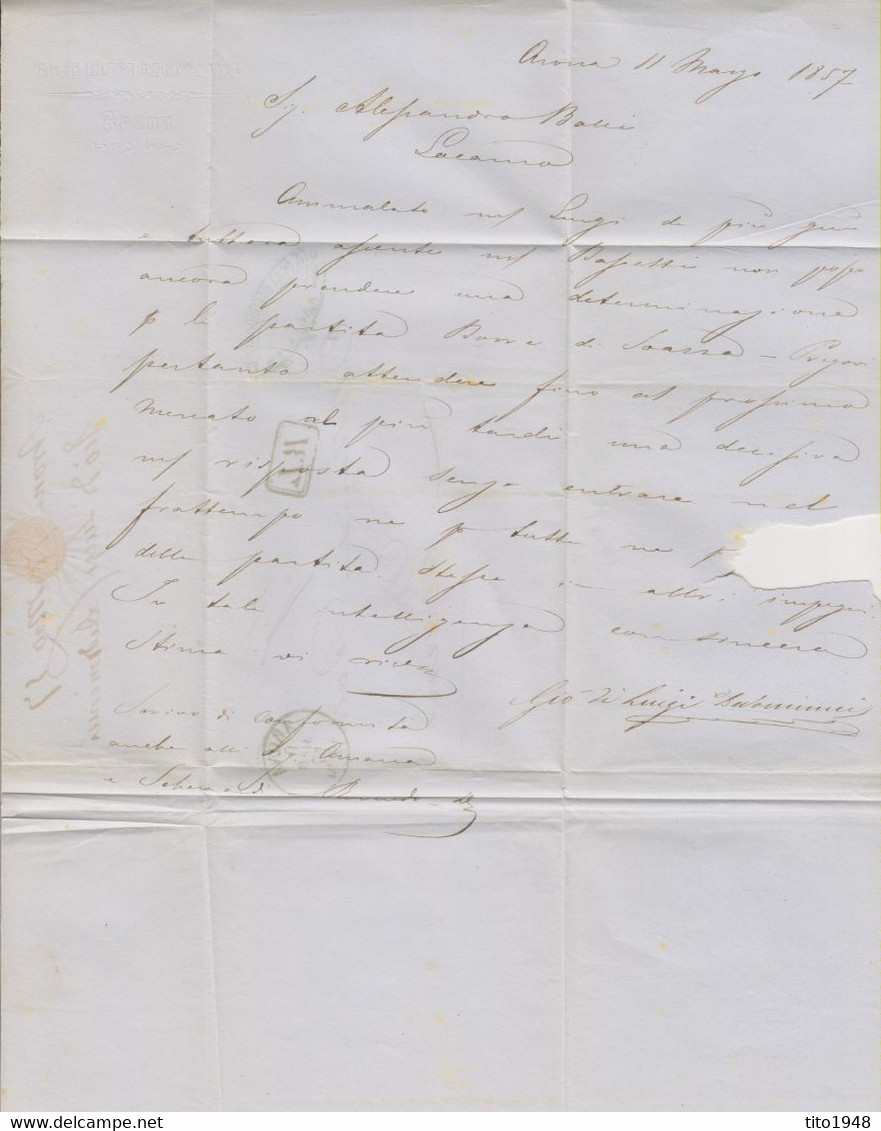 Arona 11 Marzo 1857
Sig. Alessandro Balli
Locarno
Ammalato n/ Luigi da più giorni
e tuttora assente n/ Bassetti non posso
ancora prendere una determinazione
p la partita Borre di Soazza – Pregovi
pertanto attendere fino al prossimo
mercato al più tardi una decisiva
n/ risposta senza entrare nel
frattempo ne p tutta ne p
della partita stessa in altri impegni
In tale intelligenza con sincera
stima vi
Gio di Luigi Dedominici
Scrivo di conformità
anche alli Sig.
e
Arona
R. L.
tito1948